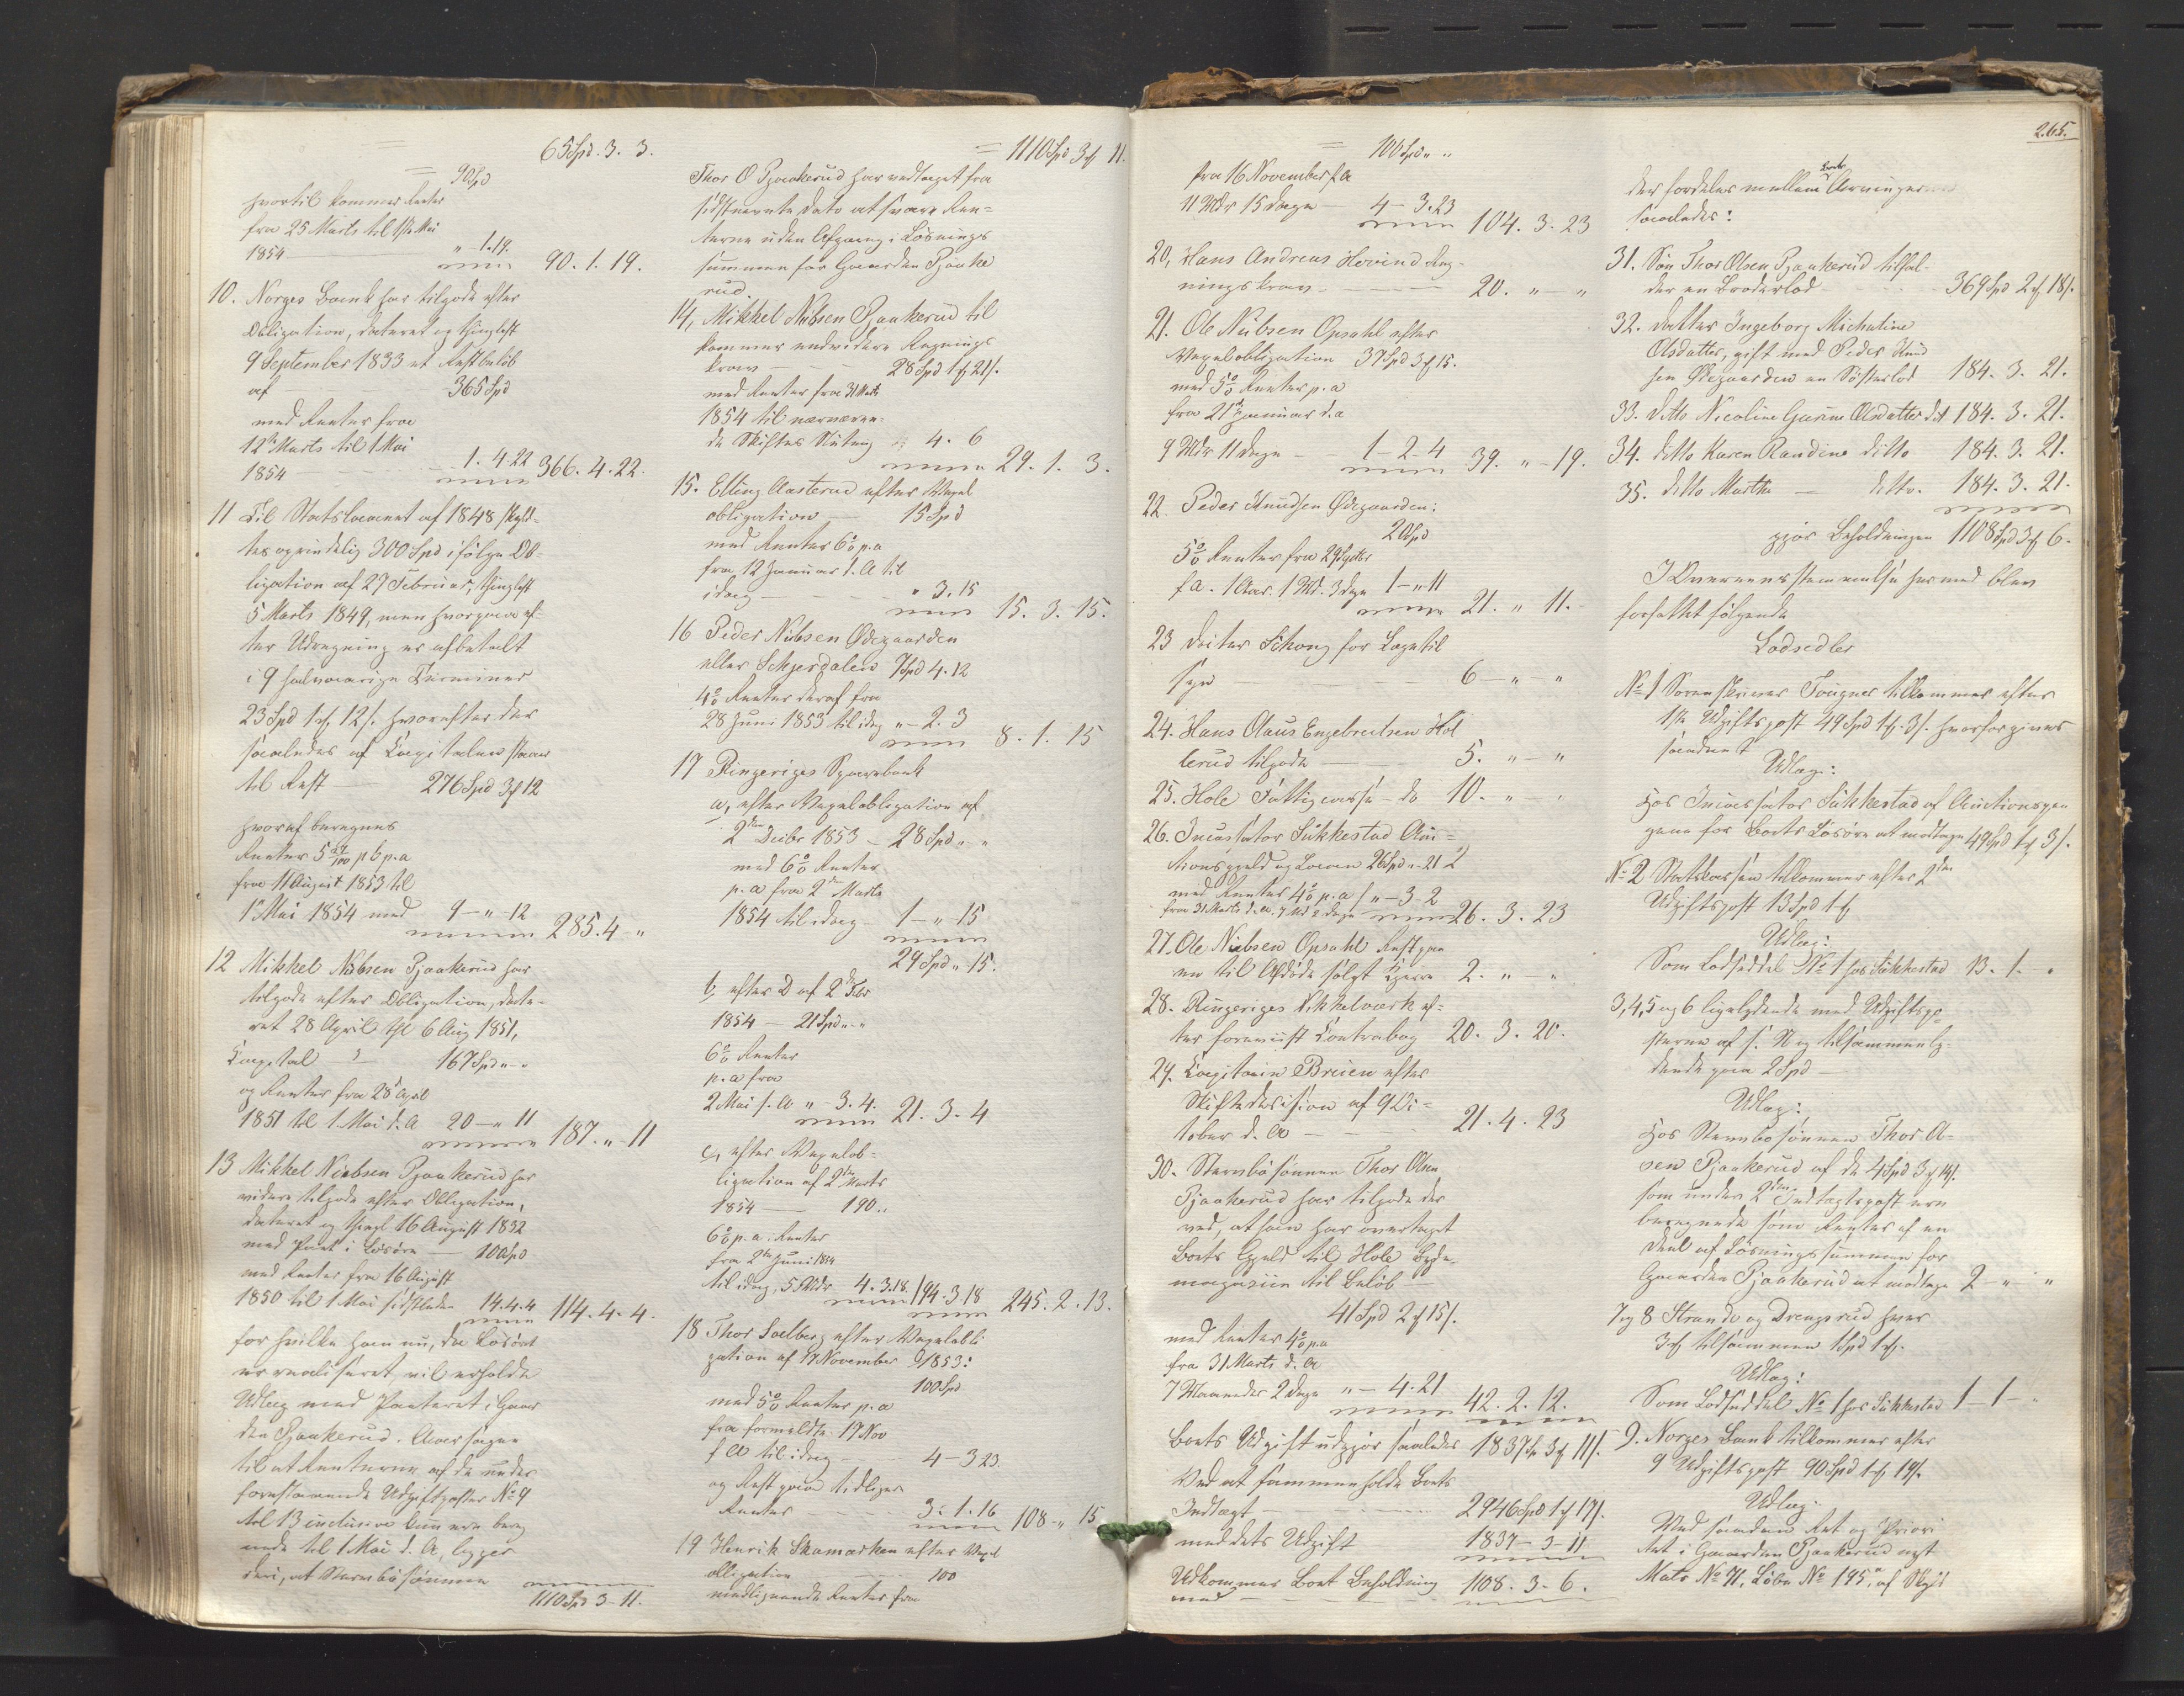 65 Spd. 3. 3.
90 Spd
hvortil kommer Renter
fra 25 Marts til 1ste Mai
1854 " - 1. 19. 90. 1. 19.
10. Norges Bank har tilgode efter
Obligation, dateret og thinglæst
9 September 1833 et Restbeløb
af 365 Spd
med Renter fra
12te Marts til 1 Mai
1854 1. 4 22 366. 4. 22.
11 Til Statslaanet af 1848 skyld-
tes oprindelig 300 Spd ifølge Ob-
ligation af 27 Februar, thinglæst
5 Marts 1849, men hvorpaa ef-
ter Udregning er afbetalt
i 9 halvaarige Terminer
23 Spd 1 # 12 s. hvorefter der
saaledes af Capitalen staaer
til Rest 276 Spd 3 # 12
hvoraf beregnes
Renter
fra 11 August 1853 til
1 Mai 1854 med 9 - " 12 285. 4 - "
12 Mikkel Nilsen Pjaakerud har
tilgode efter Obligation, date-
ret 28 April thl 6 Aug 1851,
Capital 167 Spd " - "
og Renter fra 28 April
1851 til 1 Mai d. A 20 - " 11 187. " - 11
13 Mikkel Nielsen Pjaakerud har
videre tilgode efter Obligation,
dateret og thingl 16 August 1852
med Pant i Løsøre 100 Spd
med Renter fra 16 August
1850 til 1 Mai sidstleden 14. 4. 4 114. 4. 4.
for hvilke han nu, da Løsøret
er realiseret, vil erholde
Udlæg med Panteret i Gaar
den Pjaakerud. Aarsagen
til at Renterne af de under
foranstaaende Udgiftsposter No 9
til 13 inclusive kun ere bereg
nede til 1 Mai d. A, ligger
deri, at Stervbosønnen
1110 Spd 3 - 11.
= 1110 Spd 3 # 11.
Thor O Pjaakerud har vedtaget fra
sidstnævnte Dato at svare Ren-
terne uden Afgang i Løsnings
summen for Gaarden Pjaake
rud.
14, Mikkel Nilsen Pjaakerud til
kommer endvidere Regnings
krav 28 Spd 1 # 21 s.
med Renter fra 31 Marts
1854 til nærværen-
de Skiftes Slutning 4. 6
29. 1. 3.
15. Elling Aasterud efter Vexel
obligation 15 Spd
med Renter 6% p. a
fra 12 Januar d. A til
idag " 3. 15 15. 3. 15.
16 Peder Nilsen Ødegaarden
eller Schjerdalen 7 Spd 4. 12
4% Renter deraf fra
28 Juni 1853 til idag " - 2. 3 8. 1. 15
17 Ringeriges Sparebank
a, efter Vexelobligation af
2den Decbr 1853 - 28 Spd " - "
med 6% Renter
p. a fra 2den Marts
1854 til idag - 1 - " 15
29 Spd " 15.
b, efter D af 2den Febr
1854 - 21 Spd " - "
6% Renter
p. a fra
2 Mai s. A " - 3. 4. 21. 3. 4
c, efter Vexelob-
ligation af 2den Marts
1854 190 "
6% p. a. Renter
fra 2den Juni 1854
til idag, 5 Mdr 4. 3. 18. 194. 3 18 245. 2. 13.
18 Thor Soelberg efter Vexelobli
gation af 17 November 1853:
100 Spd
med 5% Renter p. a
fra formeldte 17 Nov
f A til idag 4 - 3 23.
og Rest paa tidligere
Renter 3. 1. 16 108 - " 15
19 Henrik Skamarken efter Vexel
obligation 100
medlignende Renter fra
265.
= 100 Spd " "
fra 16 November f. A
11 Mdr 15 Dage 4 - 3. 23 104. 3. 23
20, Hans Andreas Hovind Reg-
ningskrav 20. " - "
21. Ole Nilsen Opsahl efter
Vexelobligation 37 Spd 3 # 15.
med 5% Renter p. a
fra 21de Januar d. a
9 Mdr 11 Dage - 1 - 2 - 4 39. " - 19.
22. Peder Knudsen Ødegaarden:
20 Spd
5% Renter fra 29 Septbr
f a. 1 Aar. 1 Md. 3 Dage 1 - " 11 21. " 11.
23 Docter Schong for Lægetil
syn 6 - " - "
24. Hans Olaus Engebretsen Hol
lerud tilgode 5. " - "
25. Hole Fattigcasse - do 10. " - "
26. Incassator Sükkestad Auc-
tionsgjeld og Laan 26 Spd " - 21
med Renter 4% p. a " - 3 - 2
fra 31 Marts d. a. 7 Md 2 Dage 26. 3. 23
27. Ole Nielsen Opsahl Rest paa
en til Afdøde solgt Kjærre 2. " - "
28. Ringeriges Nikkelværk ef-
ter foreviist Contrabog 20. 3. 20.
29. Capitain Brüen efter
Skiftedecision af 9 Oc-
tober d. A 21. 4. 23
30. Stervbosønnen Thor Olsen
Pjaakerud har tilgode der
ved, at han har overtaget
Boets Gjeld til Hole Bygde-
magasiin til Beløb
41 Spd 2 # 15 s.
med Renter 4% p. a
fra 31 Marts d. A
7 Maaneder 2 Dage " - 4. 21 42. 2. 12.
Boets Udgift udgjør saaledes 1837 Sp 3 # 11 s.
Ved at sammenholde Boets
Indtægt 2946 Spd 1 # 17 s.
med dets Udgift 1837 - 3 - 11
Udkommer Boet Beholdning 1108. 3 - 6.
med
der fordeles mellem Boets Arvinger
saaledes:
31. Søn Thor Olsen Pjaakerud tilfal-
der en Broderlod 369 Spd 2 # 18 s.
32. Datter Ingeborg Michaline
Olsdatter, gift med Peder Knud
sen Ødegaarden en Søsterlod 184. 3. 21.
33. Ditto Nicoline Gurine Olsdatter dit 184. 3. 21.
34. Ditto Karen Randine ditto 184. 3. 21.
35. Ditto Marthe - ditto. 184. 3. 21.
gjør Beholdningen 1108 Spd 3 # 6.
I Overeensstemmelse hermed blev
forfattet følgende
Lodsedler
No 1 Sorenskriver Tougner tilkommer efter
1ste Udgiftspost 49 Spd 1 #. 3 s. hvorfor gives
saadant
Udlæg:
Hos Incassator Sükkestad af Auctionspen
gene for Boets Løsøre at modtage 49 Spd 1 # 3 s.
No 2 Statskassen tilkommer efter 2den
Udgiftspost 13 Spd 1 #
Udlæg:
Som Lodseddel No 1 hos Sükkestad 13. 1. "
3, 4, 5 og 6 ligelydende med Udgiftspo-
sterne af s. N og tilsammenly-
dende paa 2 Spd
Udlæg:
Hos Stervbosønnen Thor Ol-
sen Pjaakerud af de 4 Spd 3 # 14 s.
som under 2den Indtægtspost ere
beregnede som Renter af en
Deel af Løsningssummen for
Gaarden Pjaakerud at modtage 2 - " - "
7 og 8 Strande og Drengsrud hver
3 # tilsammen 1 Spd 1 #.
Udlæg:
Som Lodseddel No 1 hos Sükkestad 1 - 1 - "
9. Norges Bank tilkommer efter
9 Udgiftspost 90 Spd 1 # 19 s.
Udlæg.
Med saadan Ret og Priori
tet i Gaarden Pjaakerud nyt
Matr No 71, Løbe No 195a, af Skyld